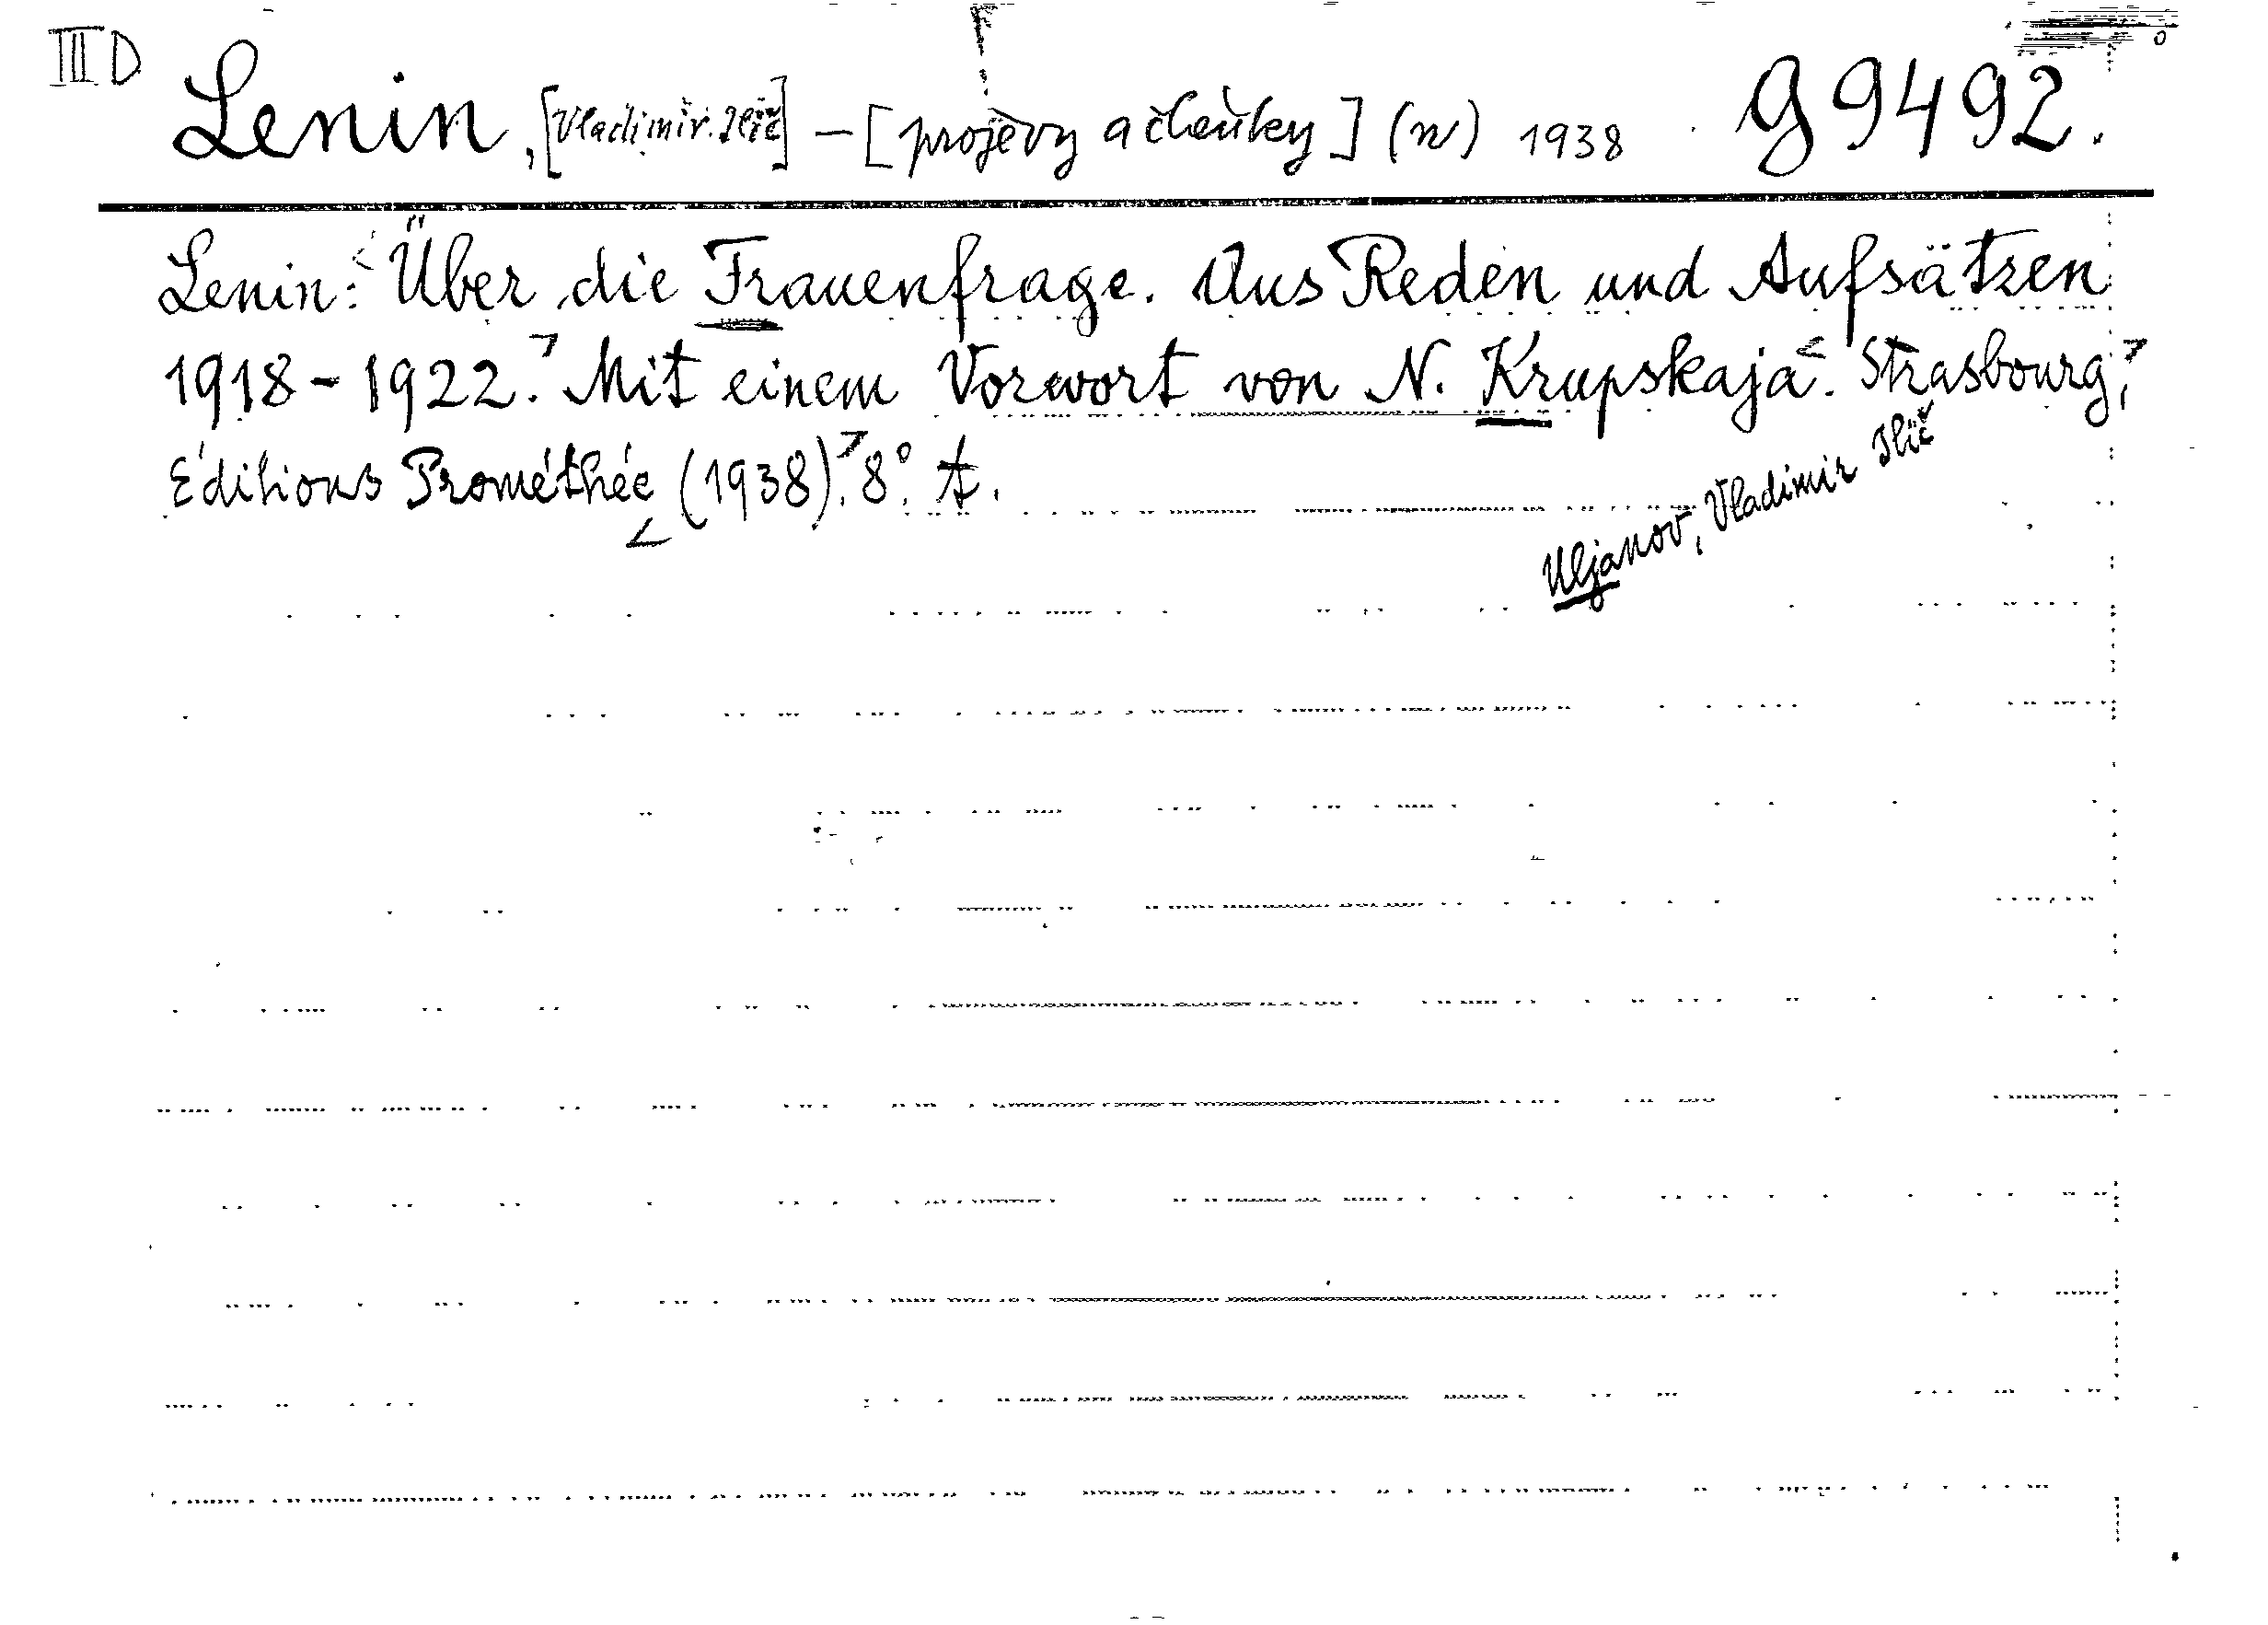 III D Lenin, [Vladimir Iljič] – [projevy a články] (n) 1938 g 9492.
Lenin: Über die Frauenfrage. Aus Reden und Aufsätzen
1918-1922. Mit einem Vorwort von N. Krupskaja. Strasbourg,
Éditions Prométhée (1938). 8°. A.
Uljanov, Vladimir Ilič